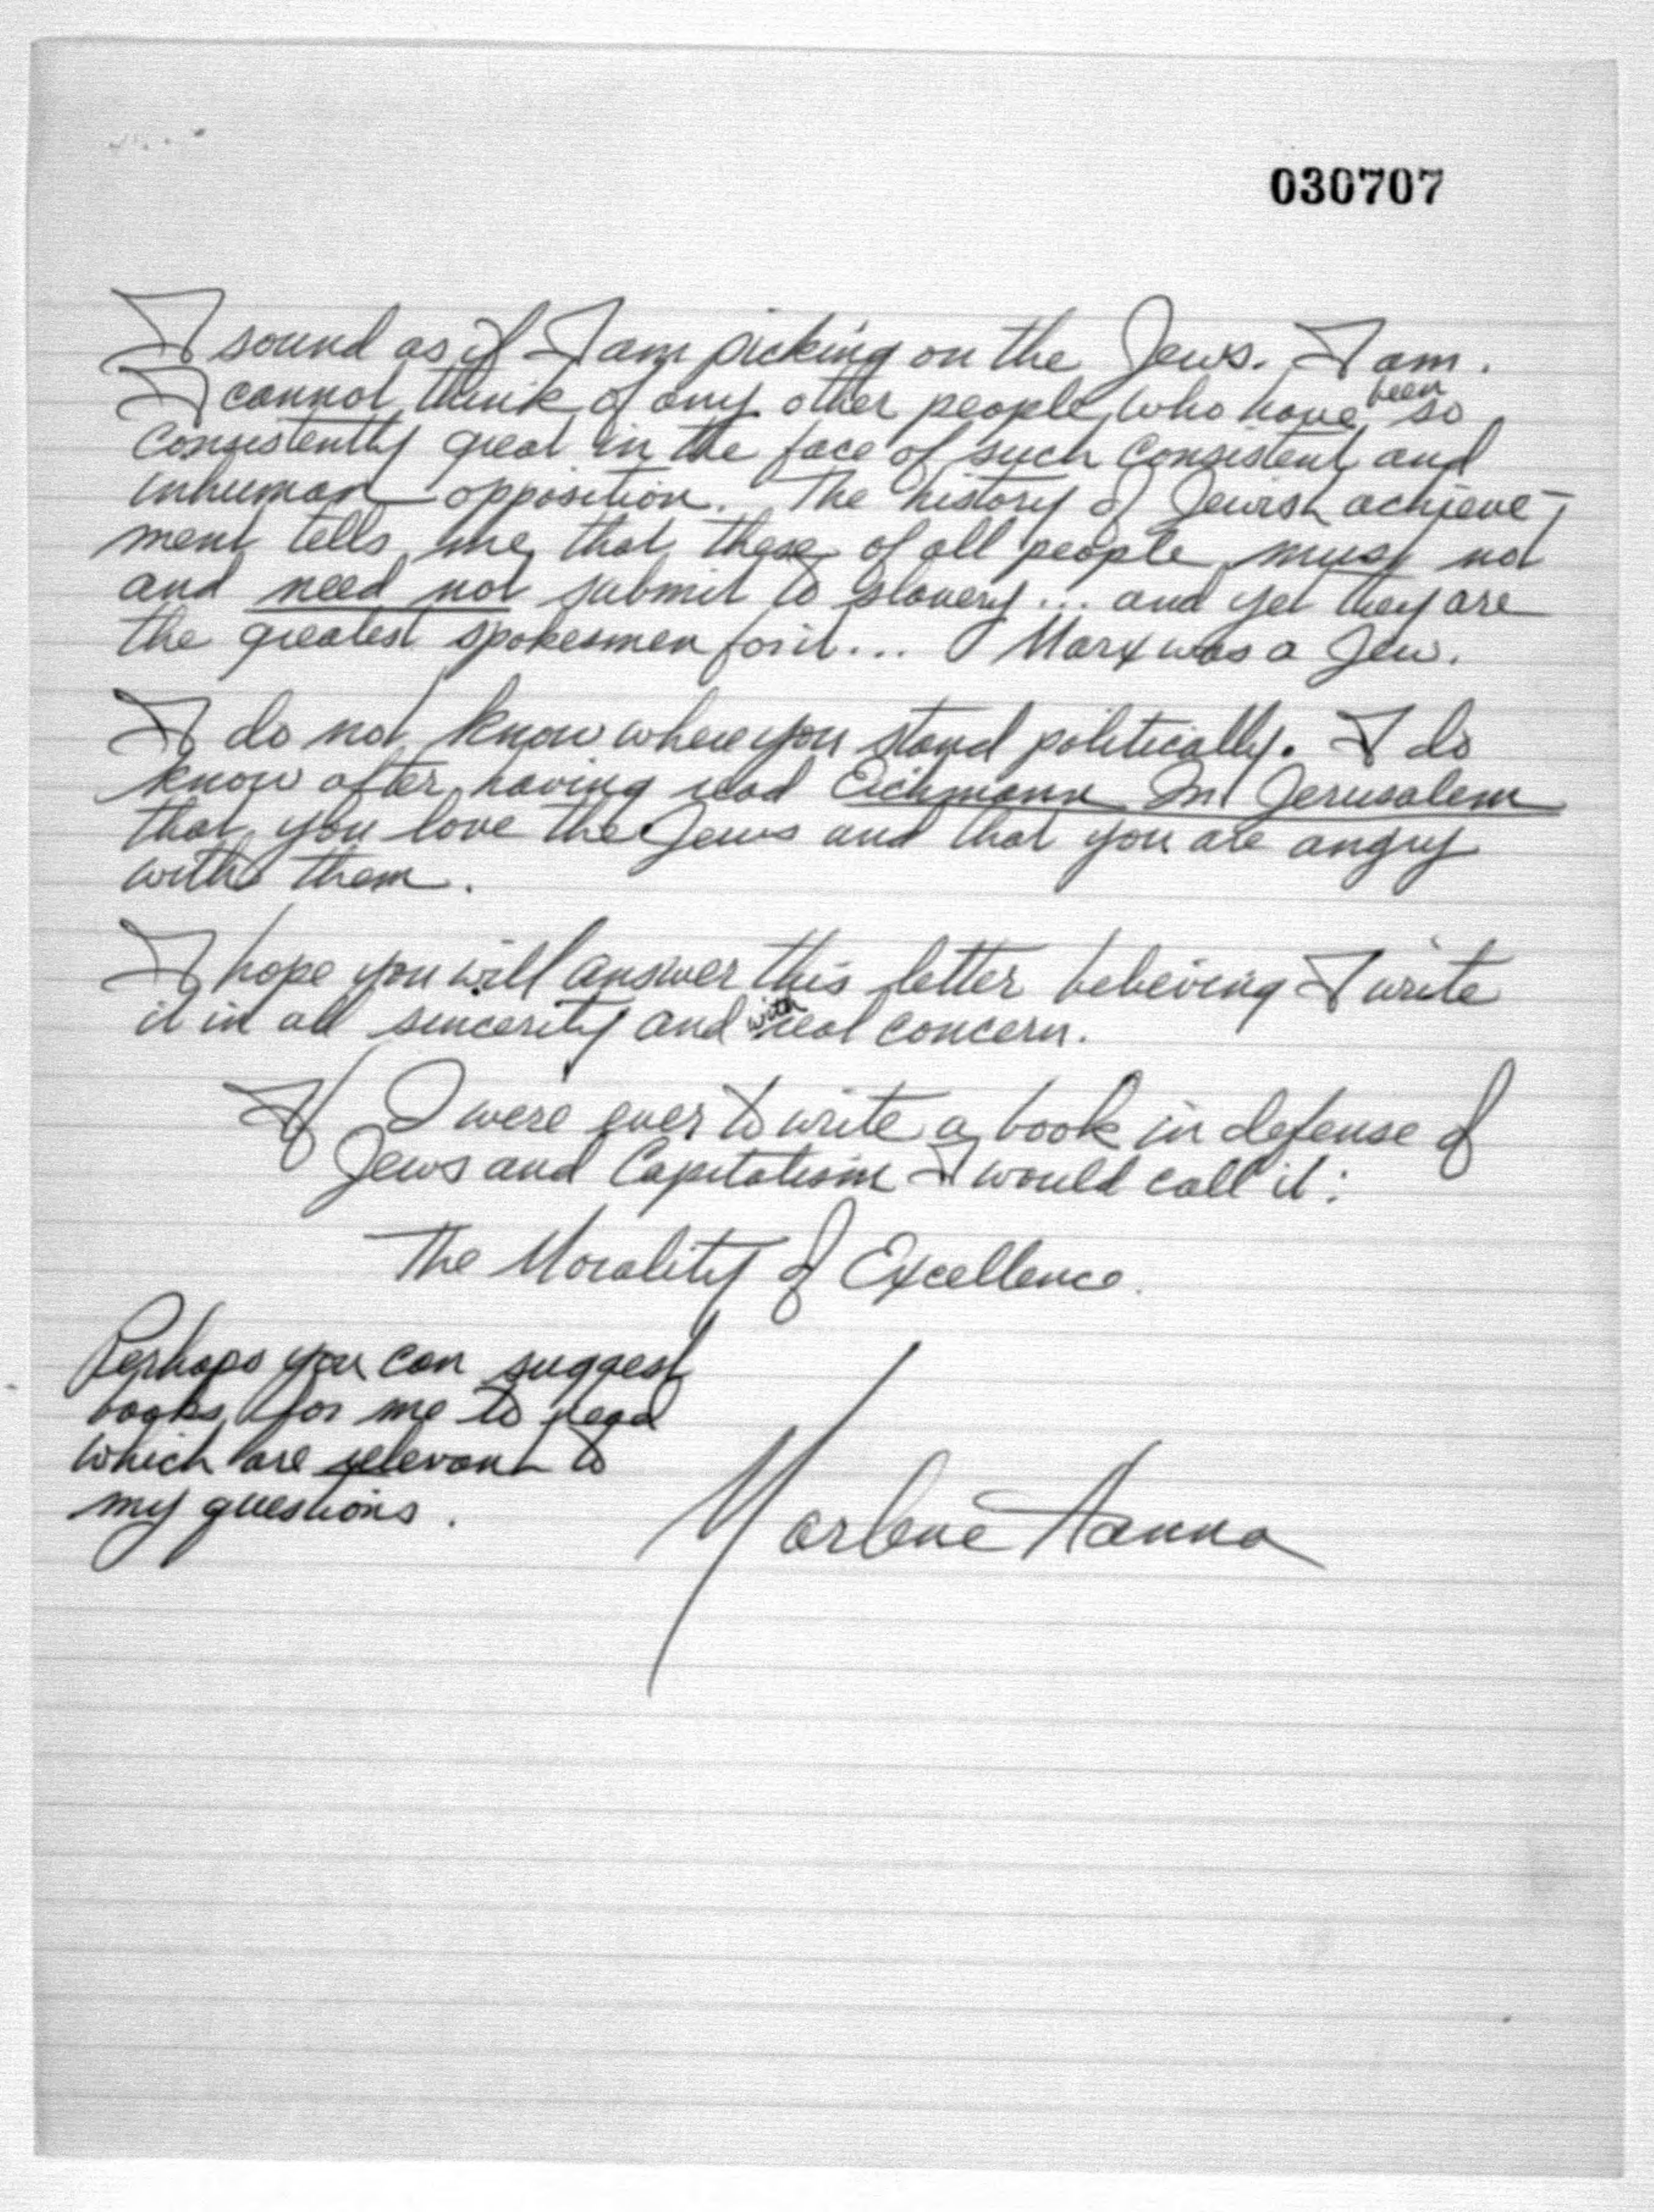 030707
I sound as if I am picking on the Jews. I am.
I cannot think of any other people who have been so
consistently great in the face of such consistent and
inhuman opposition. The history of Jewish achieve-
ment tells me that these of all people must not
and need not submit to slavery... and yet they are
the greatest spokesmen for it... Marx was a Jew.
I do not know where you stand politically. I do
know after having read Eichmann In Jerusalem
that you love the Jews and that you are angry
with them.
I hope you will answer this letter believing I write
it in all sincerity and with real concern.
If I were ever to write a book in defense of
Jews and Capitalism I would call it:
The Morality of Excellence.
Perhaps you can suggest
books for me to read
which are relevant to
my questions.
Marlene Hanna